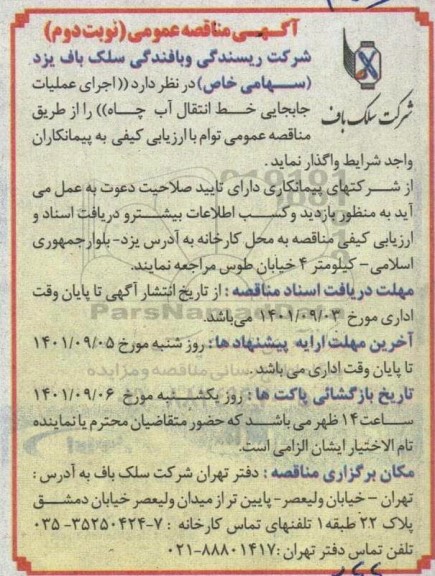 آگهی مناقصه عمومی (نوبت دوم)
شرکت ریسندگی وبافندگی سلک باف یزد
(سهامی خاص) در نظر دارد ((اجرای عملیات
جابجایی خط انتقال آب چاه)) را از طریق
مناقصه عمومی توام با ارزیابی کیفی به پیمانکاران
شرکت سلک باف
واجد شرایط واگذار نماید.
از شرکتهای پیمانکاری دارای تایید صلاحیت دعوت به عمل می
آید به منظور بازدید و کسب اطلاعات بیشتر و دریافت اسناد و
ارزیابی کیفی مناقصه به محل کارخانه به آدرس یزد- بلوار جمهوری
اسلامی – کیلومتر ۴ خیابان طوس مراجعه نمایند.
مهلت دریافت اسناد مناقصه : از تاریخ انتشار آگهی تا پایان وقت
اداری مورخ ۱۴۰۱/۰۹/۰۳ می‌باشد.
ParsNamadData
آخرین مهلت ارایه پیشنهاد ها : روز شنبه مورخ ۱۴۰۱/۰۹/۰۵
تا پایان وقت اداری می باشد.
تاریخ بازگشائی پاکت ها : روز یکشنبه مورخ ۱۴۰۱/۰۹/۰۶
ساعت ۱۴ ظهر می باشد که حضور متقاضیان محترم یا نماینده
تام الاختیار ایشان الزامی است.
مکان برگزاری مناقصه : دفتر تهران شرکت سلک باف به آدرس :
تهران – خیابان ولیعصر- پایین تر از میدان ولیعصر خیابان دمشق
پلاک ۲۲ طبقه ۱ تلفنهای تماس کارخانه : ۷-۳۵۲۵۰۴۲۴-۰۳۵
تلفن تماس دفتر تهران: ۸۸۸۰۱۴۱۷-۰۲۱